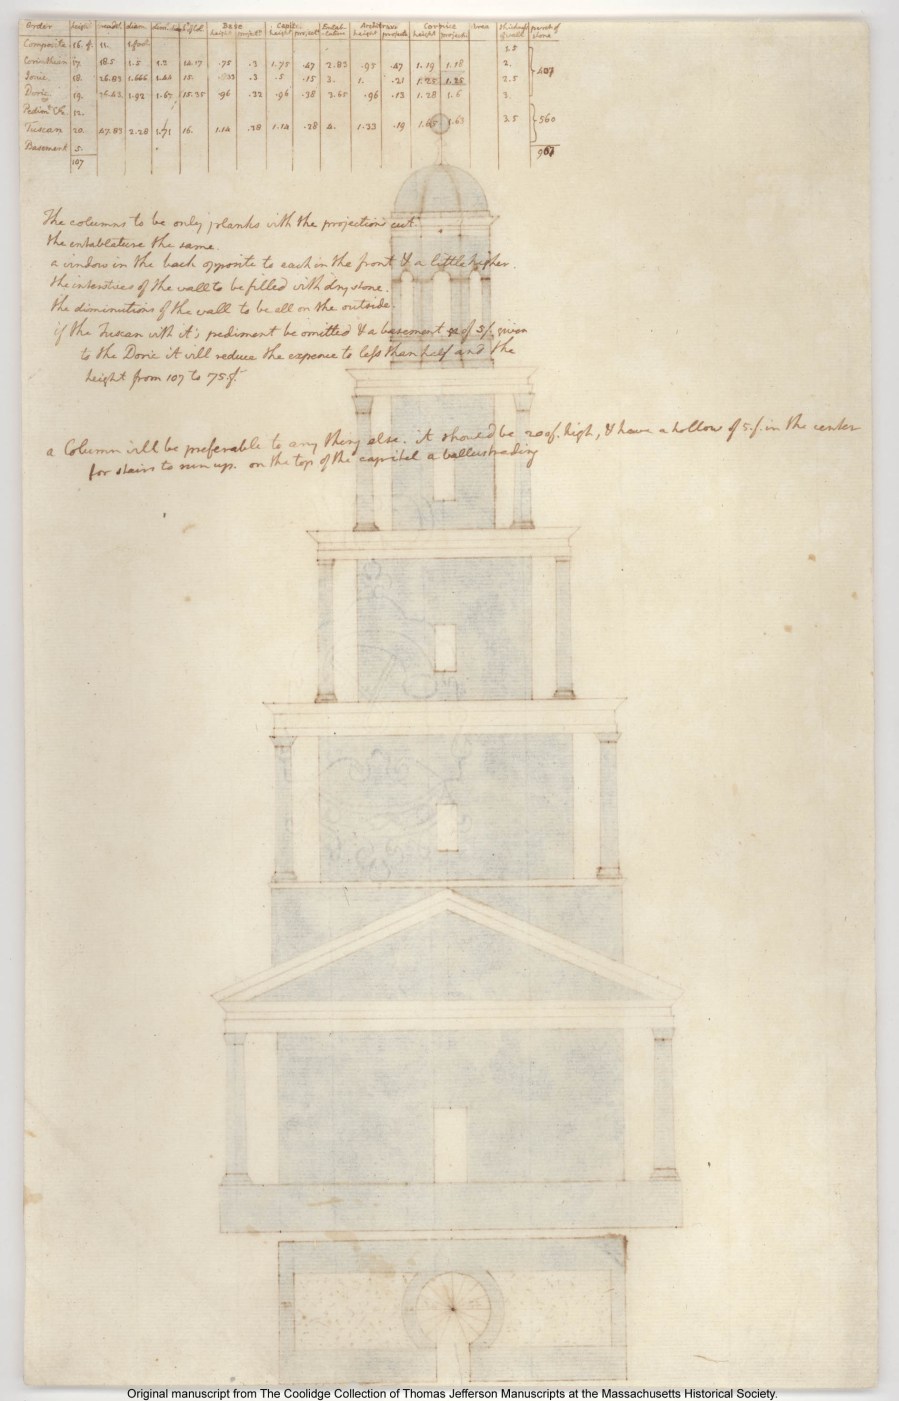 Order high breadth diam dimd Base height project Capitl height project Entablature Architrave height projects Cornice height projects thickness of wall perch of stone
Composite 16.f. 11. 1.foot 2.5
Corinthian 17. 18.5 1.5 1.3 14.17 .75 .3 1.75 .47 2.83 .95 .47 1.19 1.18 2.
Ionic 18. 26.83 1.666 1.44 15. .833 .3 .5 .15 3. 1. .21 1.25 1.25 2.5 407
Doric 19. 36.43 1.92 1.67 15.25 .96 .32 .96 .38 2.65 .96 .13 1.28 1.6 3.
Pedimt &c. 12.
Tuscan 20. 47.83 2.28 1.71 16. 1.14 .28 1.14 .28 4. 1.33 .19 1.65 1.63 3.5 560
Basement 5.
107 967
The columns to be only planks with the projections cut.
the entablature the same.
a window in the back opposite to each in the front & a little higher.
the interstices of the wall to be filled with dry stone.
the diminutions of the wall to be all on the outside.
if the Tuscan with it's pediment be omitted & a basement of 5f. given
to the Doric it will reduce the expence to less than half and the
height from 107 to 75.f.
a Column will be preferable to any thing else. it should be 200f. high, & have a hollow of 5.f. in the center
for stairs to run up. on the top of the capitel a ballustrading
Original manuscript from The Coolidge Collection of Thomas Jefferson Manuscripts at the Massachusetts Historical Society.